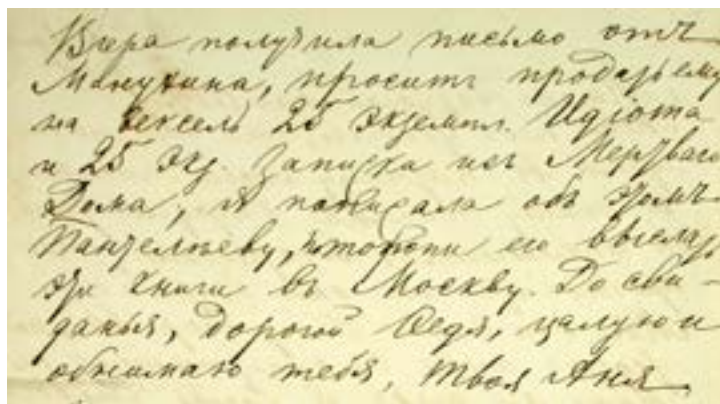 Вчера получила письмо отъ
Манухина, проситъ продать ему
на вексель 25 экземпл. Идіота
и 25 экз. Записка изъ Мертваго
Дома, Я написала объ этомъ
Пантелѣеву, чтобы онъ его выслалъ
эти книги въ Москву. До сви-
данья, дорогой Федя, цалую и
обнимаю тебя, твоя Аня